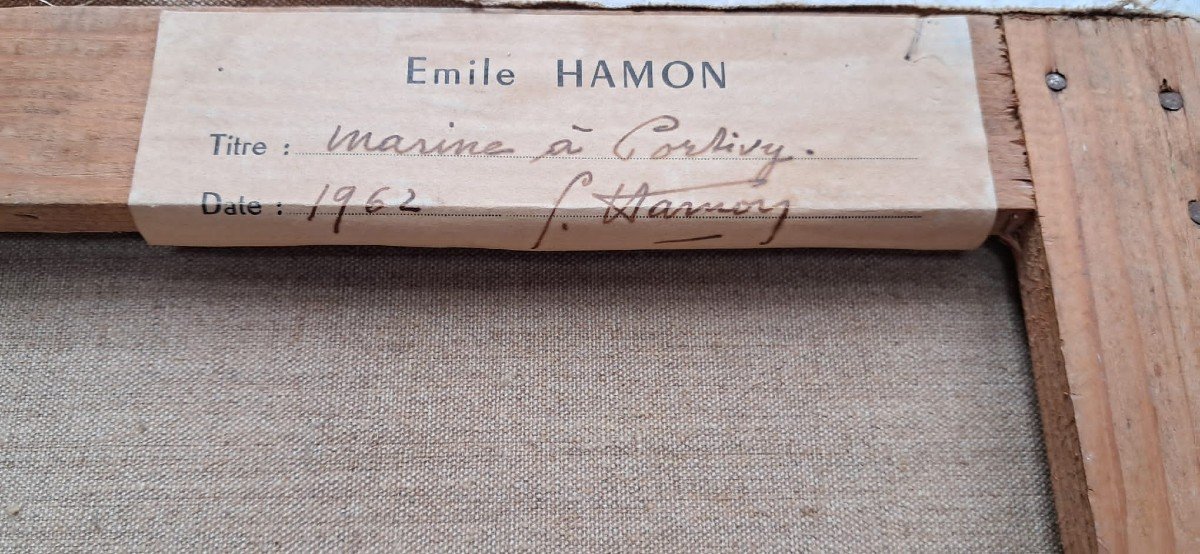 Emile HAMON
Titre : marine à Portivy.
Date : 1962 E. Hamon